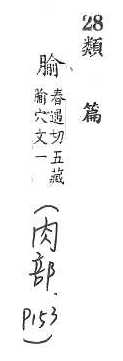 28類篇
腧、春遇切五藏
腧穴文一
(肉部.
P153)